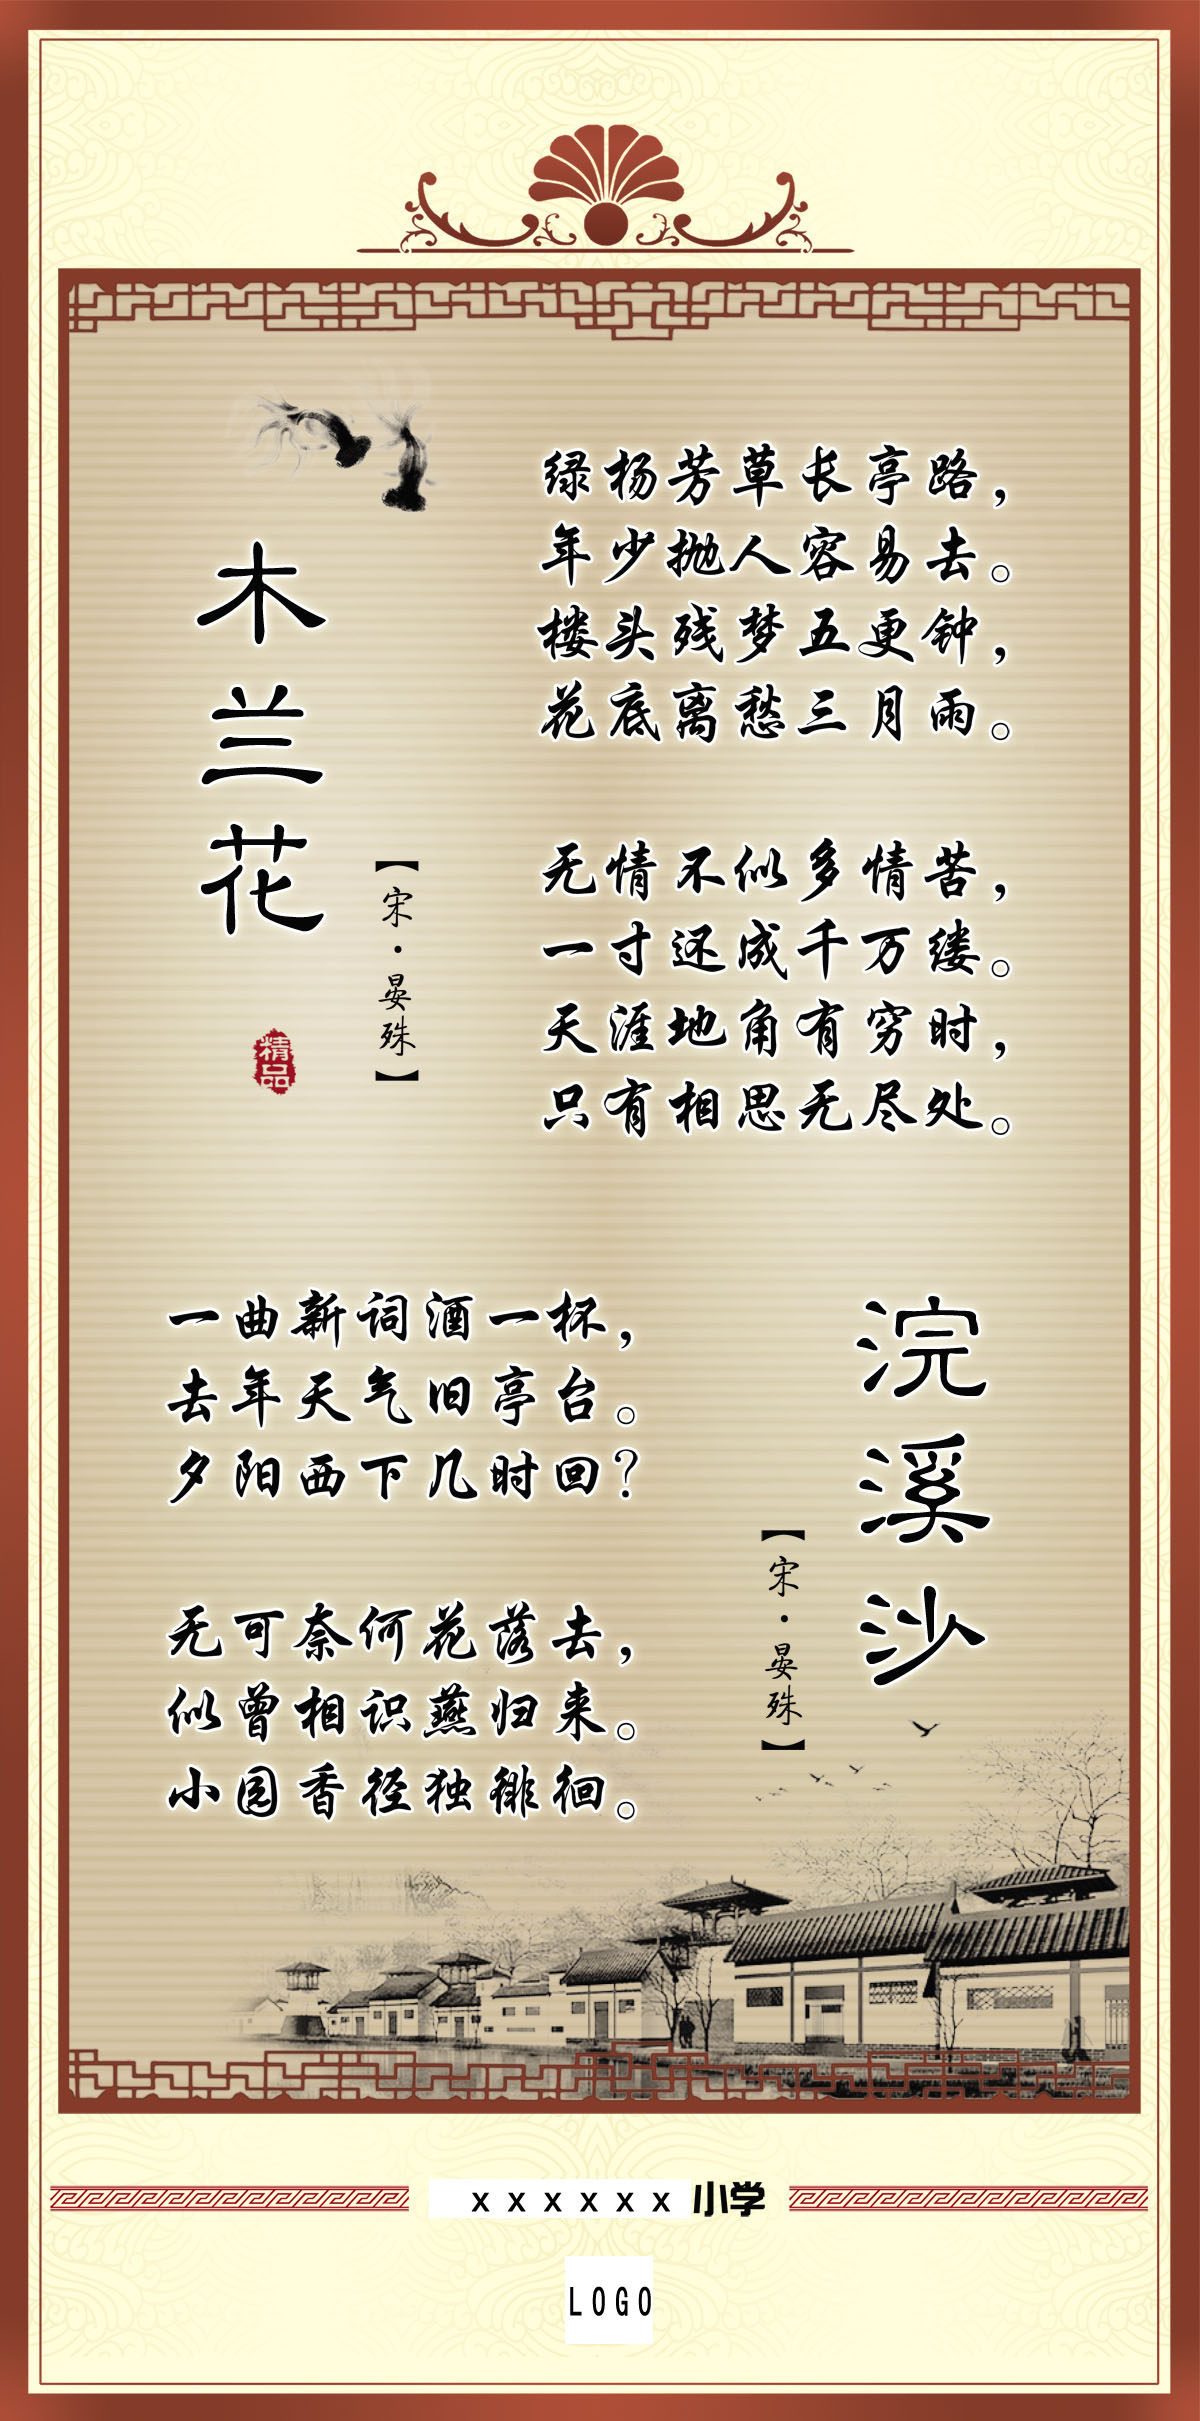 木兰花
【宋·晏殊】
精品
绿杨芳草长亭路，
年少抛人容易去。
楼头残梦五更钟，
花底离愁三月雨。
无情不似多情苦，
一寸还成千万缕。
天涯地角有穷时，
只有相思无尽处。
浣溪沙
【宋·晏殊】
一曲新词酒一杯，
去年天气旧亭台。
夕阳西下几时回？
无可奈何花落去，
似曾相识燕归来。
小园香径独徘徊。
xxxxxx小学
LOGO